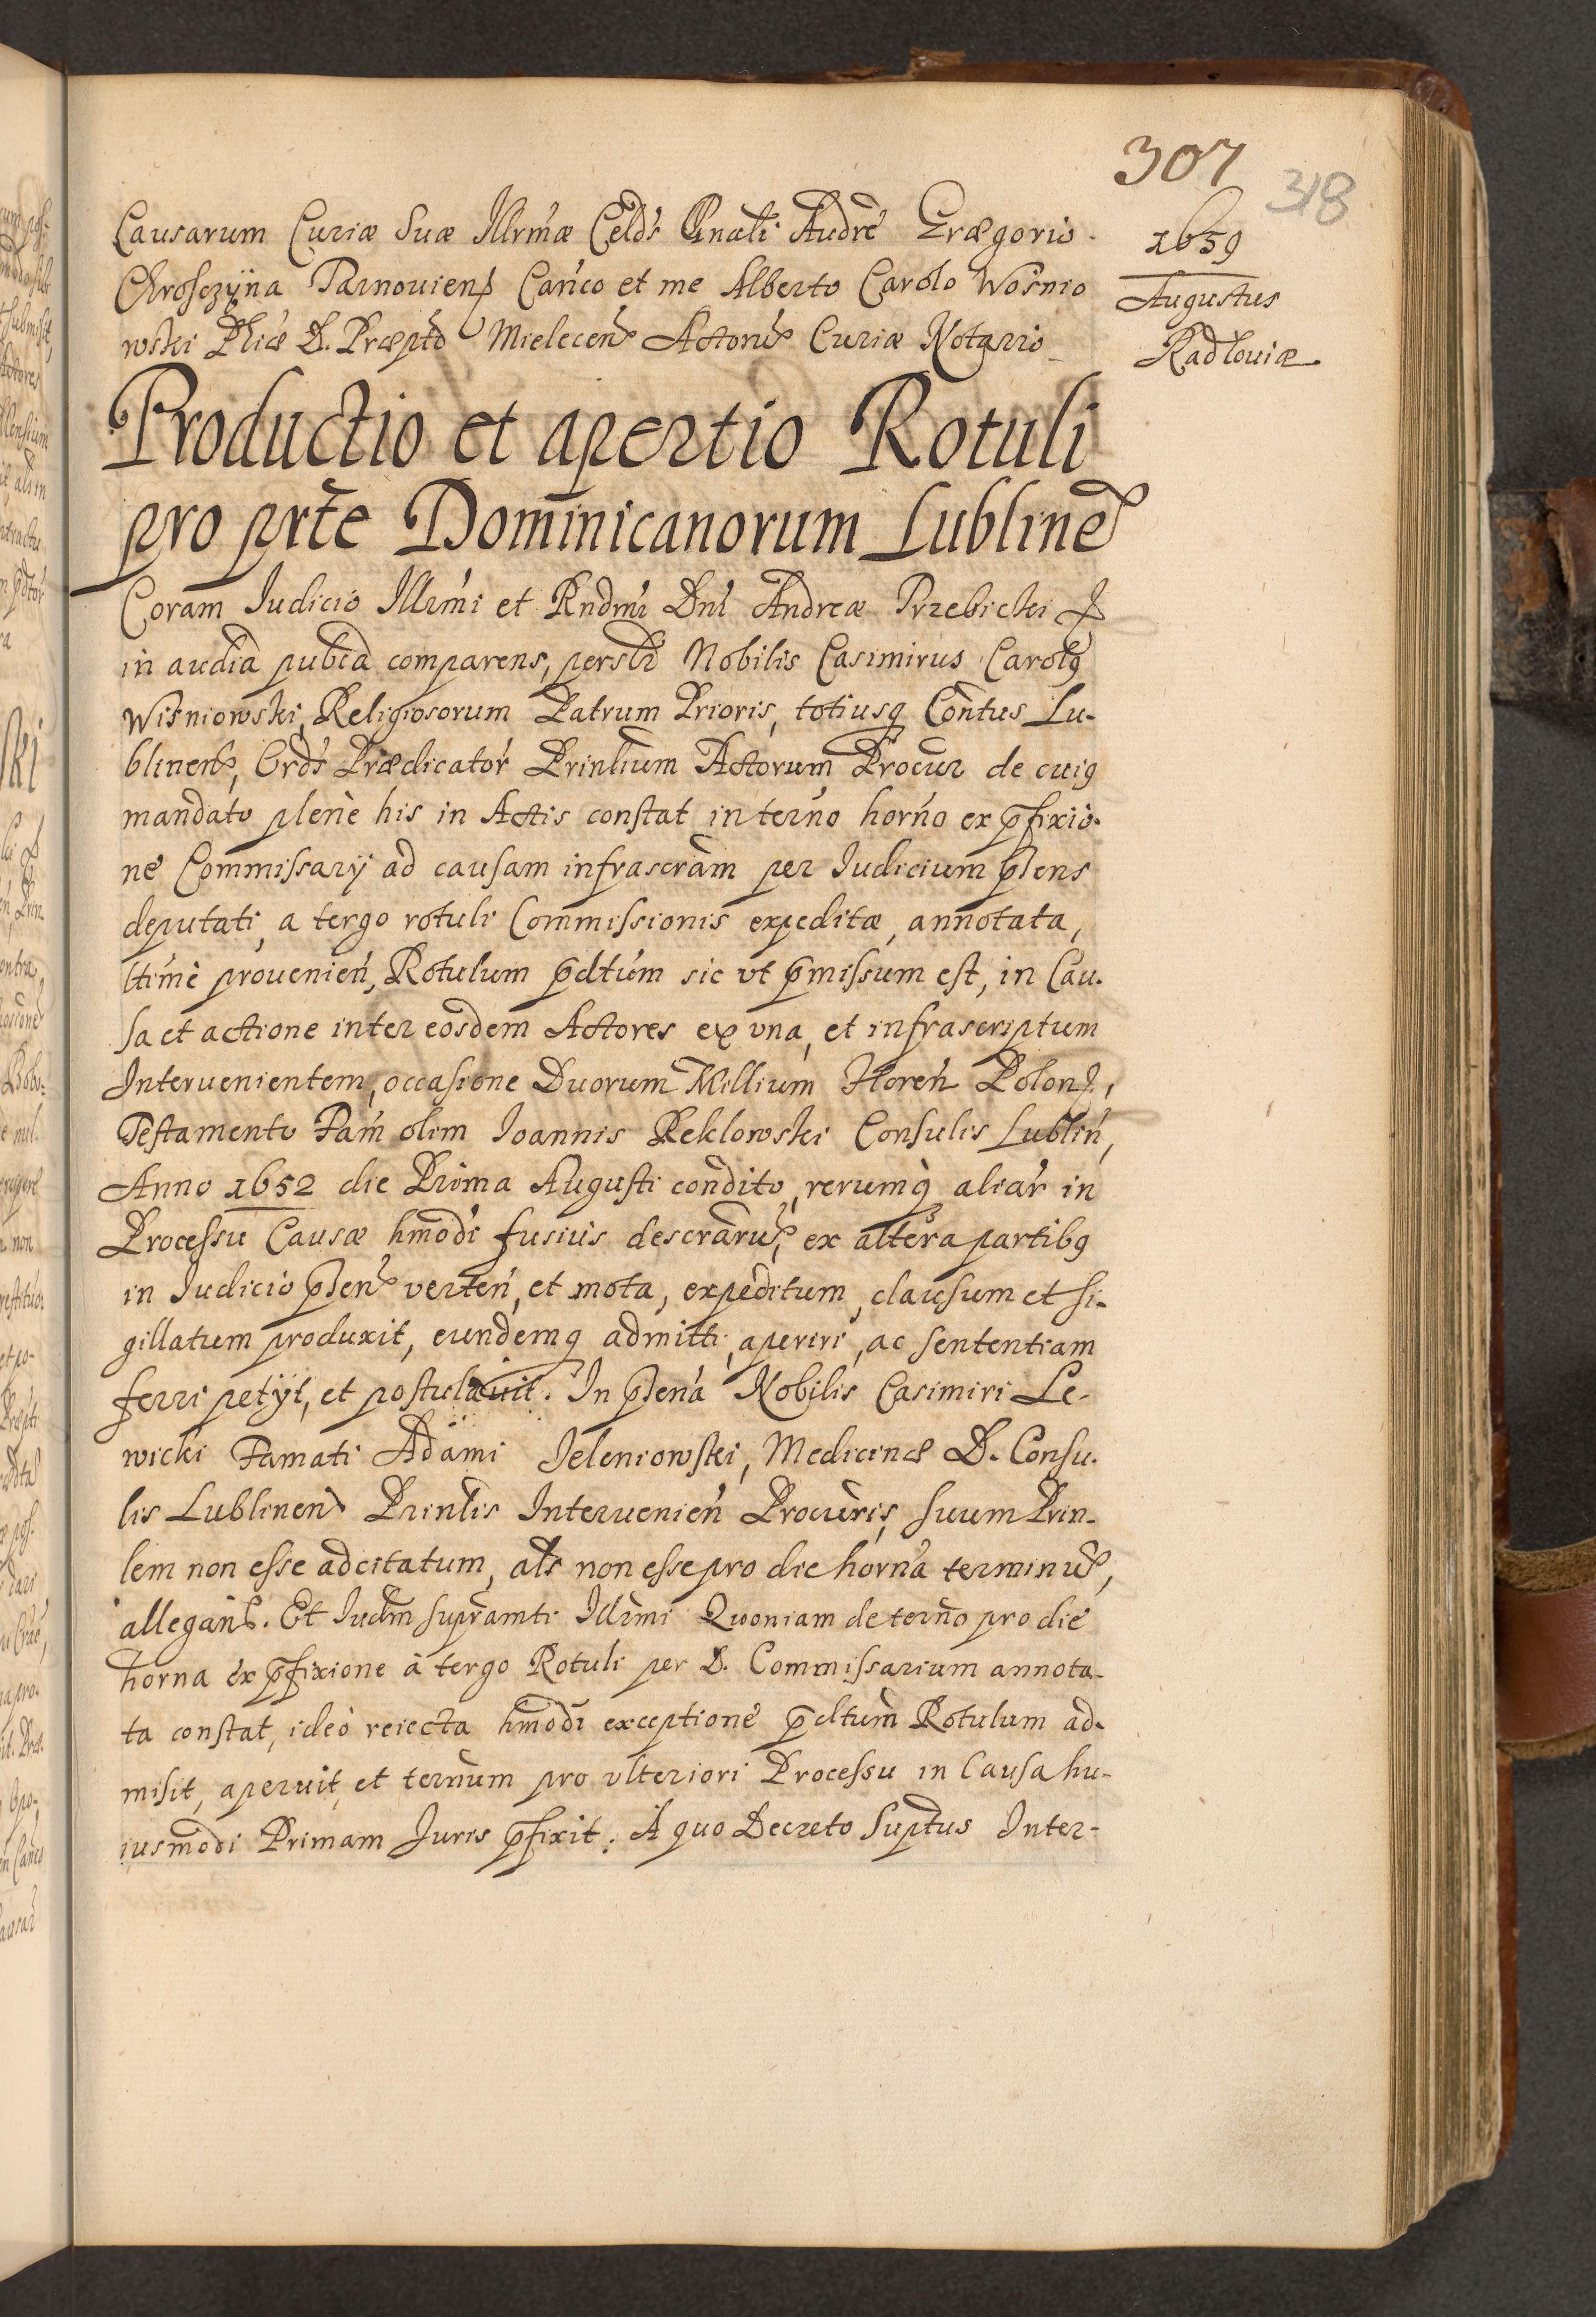 307
318
1659
Augustus
Radłoviæ
Causarum Curiæ Suæ Illrmæ Celds Gnali Audre Græegorio
Chrosczyna Tarnoviens Canco et me Alberto Carolo Wosnio
wski Phiæ D. Præpto Mielecens Actorus Curiæ Notario
Productio et apertio Rotuli
pro prte Dominicanorum Lubline
Coram Iudicio Illrmi et Rndmi Dni Andreæ Przebicki
in audia pubca comparens, perslr Nobilis Casimirus Carolg
Wisniowski, Religiosorum Patrum Prioris, totiusq Contus Lu-
blinens, Ords Prædicator Prinlium Actorum Procur de cuig
mandato plene his in Actis constat in terno horno ex pfixio-
ne Commissarij ad causam infrascram per Iudicium psens
deputati, a tergo rotuli Commissionis expeditæ, annotata,
ltime provenien, Rotulum pdtum sic vt pmissum est, in Cau-
sa et actione inter eosdem Actores ex vna, et infrascriptum
Intervenientem, occasione Duorum Millium Floren Polons,
Testamento Fam olim Ioannis Reklowski Consulis Lublin,
Anno 1652 die Prima Augusti condito, rerumq aliar in
Processu Causæ hmodi fusius descrarus, ex altera partibg
in Iudicio psens verten, et mota, expeditum, clausum et si-
gillatum produxit, eundemq admitti, aperiri, ac sententiam
ferri petijt, et postulavit. In psena Nobilis Casimiri Le-
wicki Famati Adami Jeleniowski, Medicinæ D. Consu-
lis Lublinens Prinlis Intervenien Procuris, suum Prin-
lem non esse adcitatum, als non esse pro die horna terminus,
allegans. Et Iudm supramti Illrmi Quoniam de terno pro die
horna ex pfixione à tergo Rotuli per D. Commissarium annota-
ta constat, ideò reiecta hmodi exceptione pdtum Rotulum ad-
misit, aperuit, et ternum pro vlteriori Processu in Causa hu-
iusmodi Primam Juris pfixit. A quo Decreto Suptus Inter-